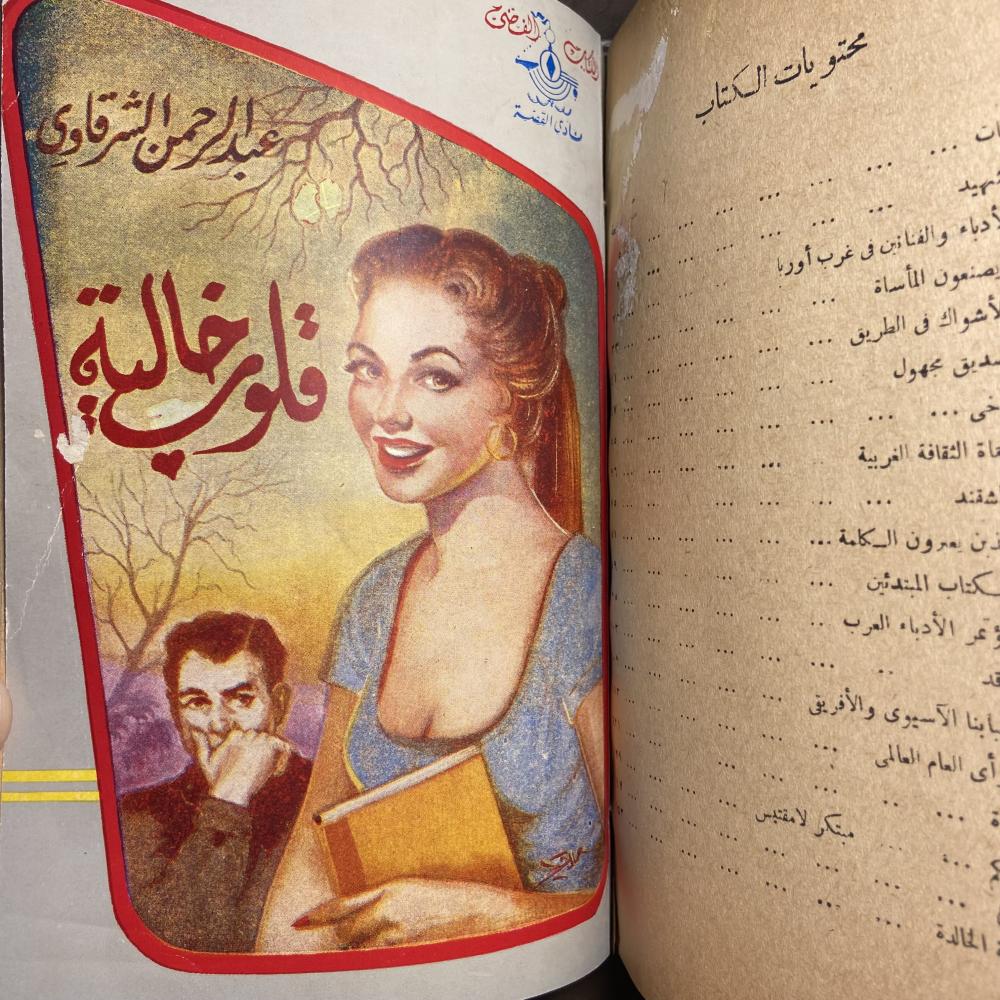 الكتاب الفضي
نادى القصة
عبد الرحمن الشرقاوي
قلوب خالية
محتويات الكتاب
... ... ...
... ... ...
الأدباء والفنانين فى غرب أوربا
يصنعون المأساة ...
الأشواك فى الطريق
صديق مجهول ...
... ... ...
الثقافة الغربية ...
... ...
يعبرون الكلمة ...
الكتاب المبتدئين
مؤتمر الأدباء العرب ...
... ...
الآسيوى والأفريقى
العام العالمى
... ...
مبتكر لا مقتبس
... ...
... ...
الخالدة ...